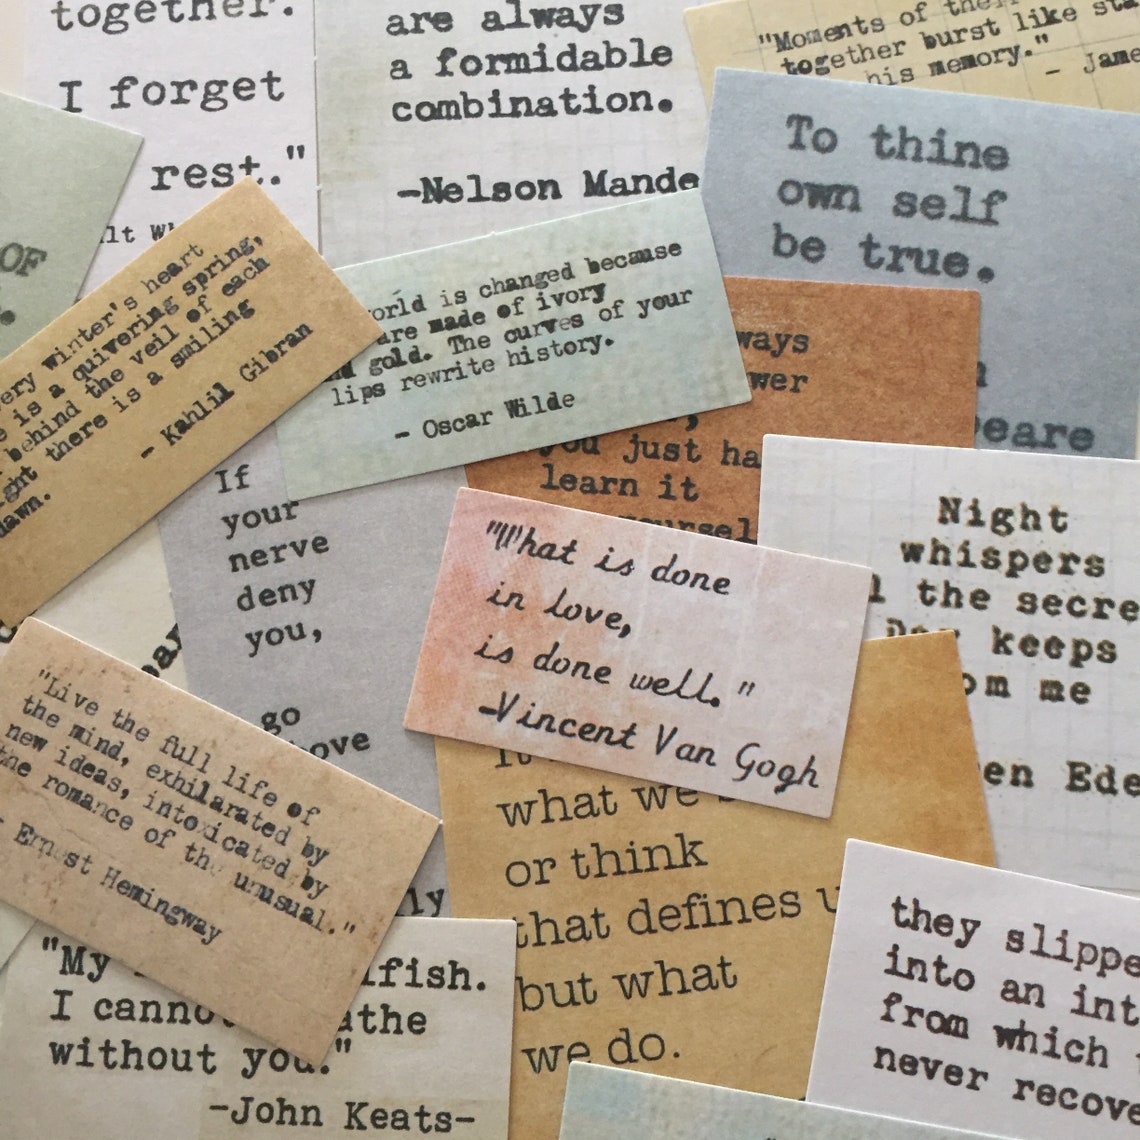 together.
I forget
rest."
are always
a formidable
combination.
-Nelson Mande
"Moments of their
together burst like sta
his memory."
- Jame
To thine
own self
be true.
peare
OF
ery winter's heart
e is a quivering spring,
behind the veil of each
ght there is a smiling
dawn.
- Kahlil Gibran
orld is changed because
are made of ivory
gold. The curves of your
lips rewrite history.
- Oscar Wilde
ways
wer
you just ha
learn it
oursel
If
your
nerve
deny
you,
go
ove
"What is done
in love,
is done well."
-Vincent Van Gogh
Night
whispers
the secre
Day keeps
om me
en Ede
"Live the full life of
the mind, exhilarated by
new ideas, intoxicated by
the romance of the unusual."
- Ernest Hemingway
what we
or think
that defines u
but what
we do.
ly
"My lfish.
I cannot athe
without you."
-John Keats-
they slippe
into an int
from which
never recove